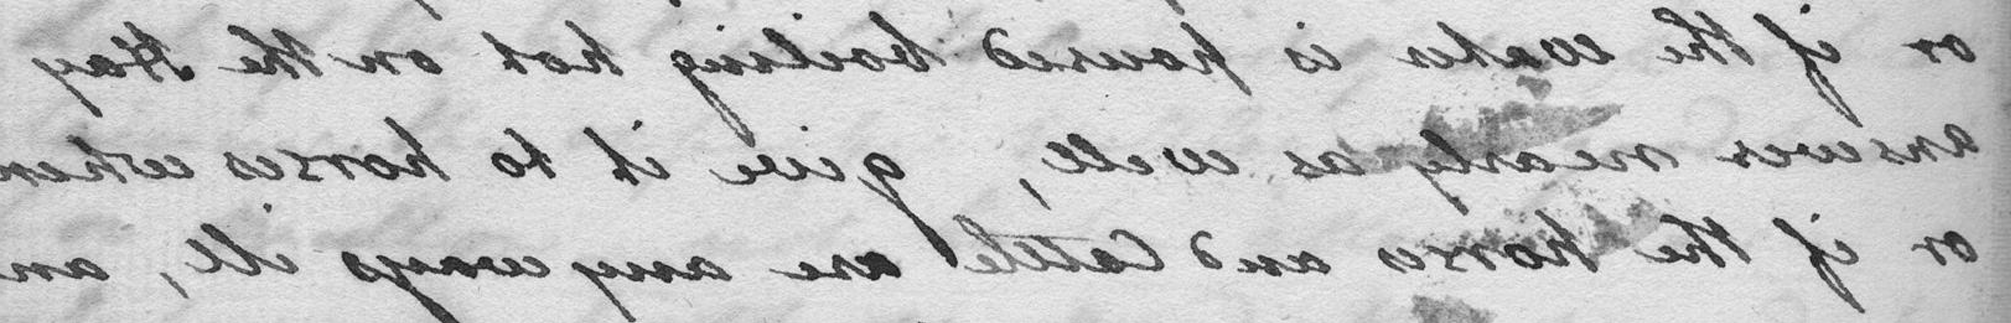 or if the water is poured boeling hot on the Hay
answer nearly as well, give it to horses when
or if the horses and Cattle are any ways ill, an